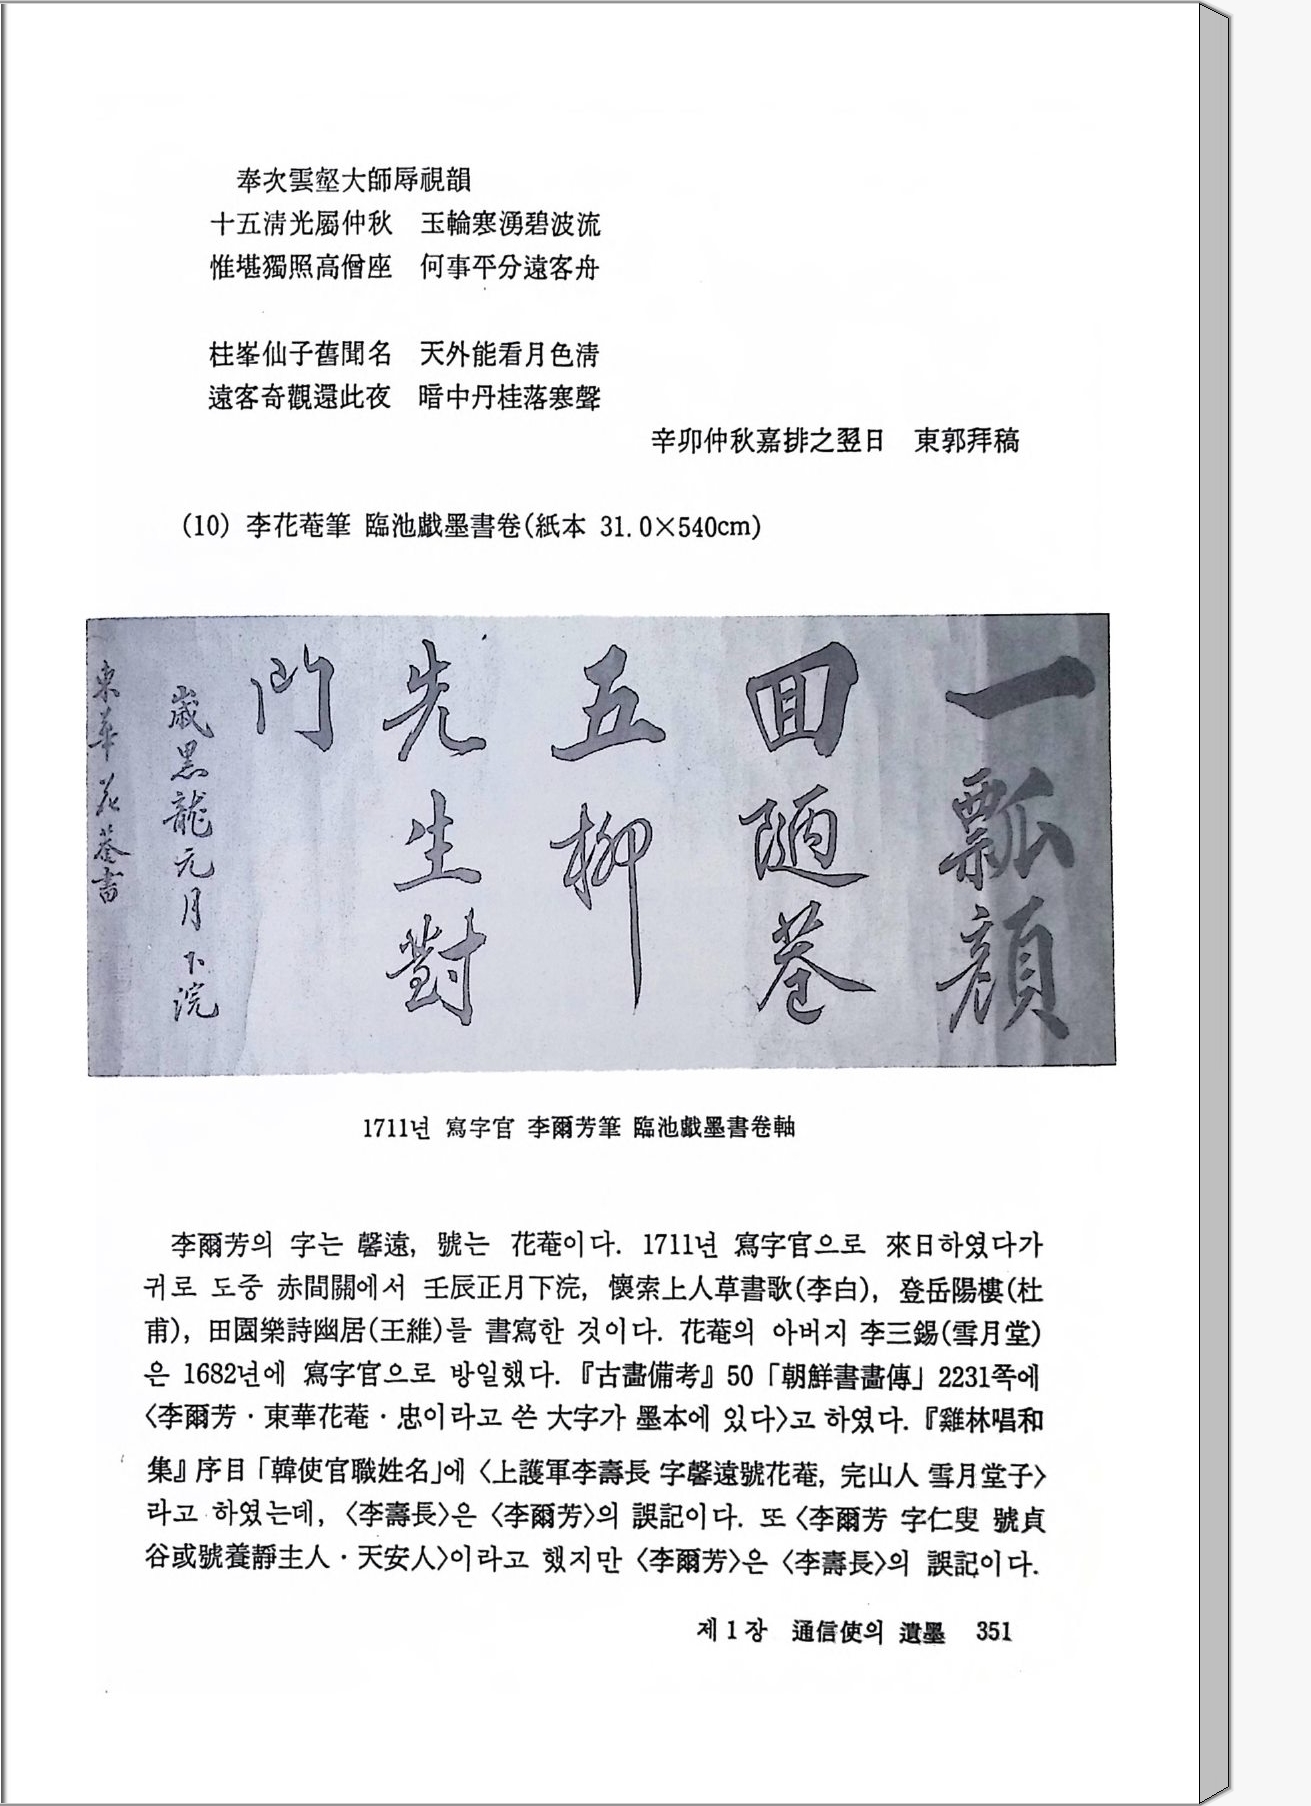 奉次雲壑大師辱視韻
十五淸光屬仲秋 玉輪寒湧碧波流
惟堪獨照高僧座 何事平分遠客舟
柱峯仙子舊聞名 天外能看月色淸
遠客奇觀還此夜 暗中丹桂落寒聲
辛卯仲秋嘉排之翌日 東郭拜稿
(10) 李花菴筆 臨池戱墨書卷(紙本 31.0×540cm)
一瓢顔
回陋巷
五柳
先生對
門
歲黑龍元月下浣
東華花菴書
1711년 寫字官 李爾芳筆 臨池戱墨書卷軸
李爾芳의 字는 馨遠, 號는 花菴이다. 1711년 寫字官으로 來日하였다가
귀로 도중 赤間關에서 壬辰正月下浣, 懷素上人草書歌(李白), 登岳陽樓(杜
甫), 田園樂詩幽居(王維)를 書寫한 것이다. 花菴의 아버지 李三錫(雪月堂)
은 1682년에 寫字官으로 방일했다. 『古畵備考』 50 「朝鮮書畵傳」 2231쪽에
〈李爾芳·東華花菴·忠이라고 쓴 大字가 墨本에 있다〉고 하였다. 『雞林唱和
集』 序目 「韓使官職姓名」에 〈上護軍李壽長 字馨遠號花菴, 完山人 雪月堂子〉
라고 하였는데, 〈李壽長〉은 〈李爾芳〉의 誤記이다. 또 〈李爾芳 字仁叟 號貞
谷或號養靜主人·天安人〉이라고 했지만 〈李爾芳〉은 〈李壽長〉의 誤記이다.
제 1 장 通信使의 遺墨 351